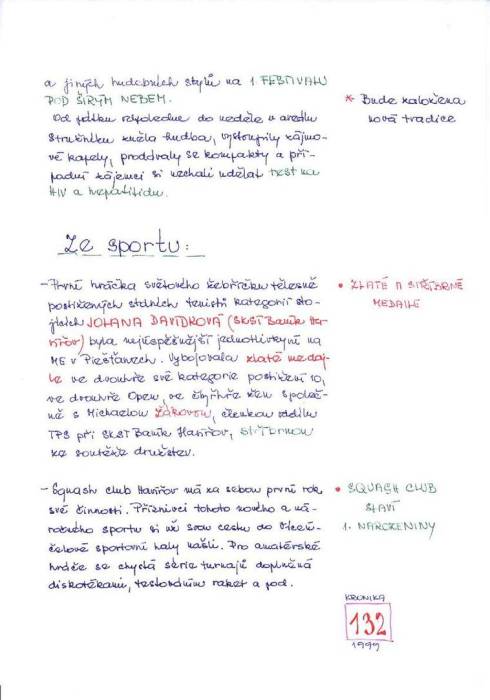 a jiných hudebních stylů na 1. FESTIVALU
POD ŠIRÝM NEBEM.
Od pátku odpoledne do neděle v areálu
Stružníku zněla hudba, vystoupily zájmo-
vé kapely, prodávaly se kompakty a pří-
padní zájemci si nechali udělat test na
HIV a hepatitidu.
* Bude založena
nová tradice
Ze sportu:
- První hráčka světového žebříčku tělesně
postižených stolních tenistů kategorií sto-
jících JOLANA DAVÍDKOVÁ (SKST Baník Ha-
vířov) byla nejúspěšnější jednotlivkyní na
ME v Piešťanech. Vybojovala zlaté medaj-
le ve dvouhře své kategorie postižení 10,
ve dvouhře Open, ve čtyřhře žen společ-
ně s Michaelou ŽÁKOVOU, členkou oddílu
TPS při SKST Baník Havířov, stříbrnou
za soutěže družstev.
• ZLATÉ A STŘÍBRNÉ
MEDAILE
- Squash club Havířov má za sebou první rok
své činnosti. Příznivci tohoto nového a ná-
ročného sportu si už svou cestu do Víceú-
čelové sportovní haly našli. Pro amatérské
hráče se chystá série turnajů doplněná
diskotékami, testováním raket a pod.
• SQUASH CLUB
SLAVÍ
1. NAROZENINY
KRONIKA
132
1999